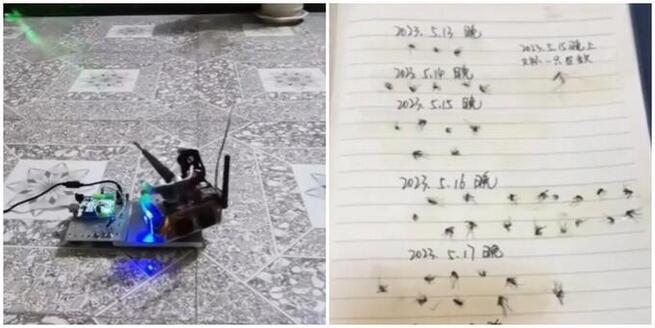 2023. 5.13 晚
2023. 5.15 晚上
一只
2023. 5.14 晚
2023. 5.15 晚
2023. 5.16 晚
2023. 5.17 晚